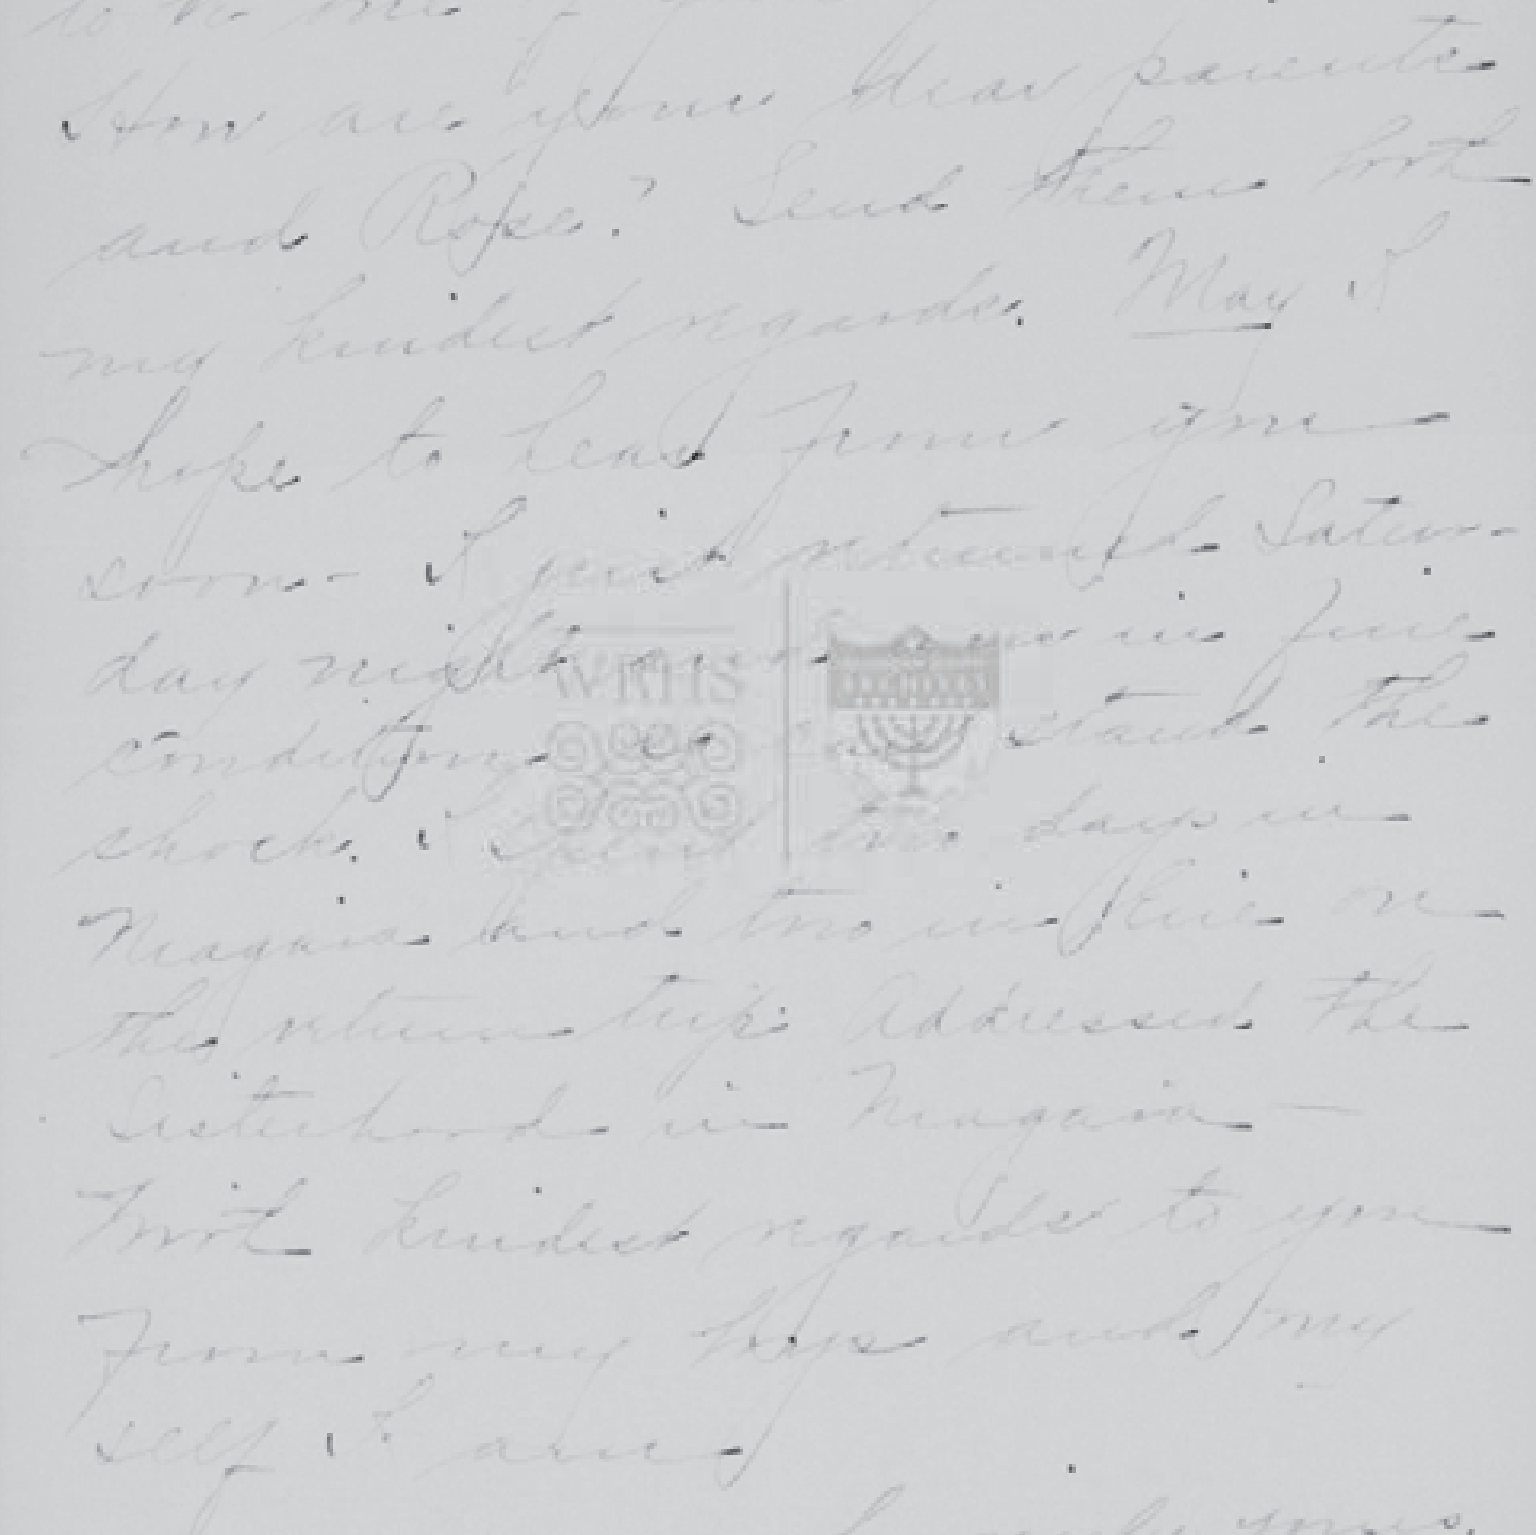 to be one of your
How are your dear parents
and Rose? Send them both
my kindest regards. May I
hope to hear from you
soon - I just returned Satur-
day night and am in fine
condition to stand the
shock. I spent two days in
Niagara and two in Erie on
the return trip. Addressed the
Sisterhood in Niagara —
With kindest regards to you
from my boys and my
self I am
yours,
WRHS